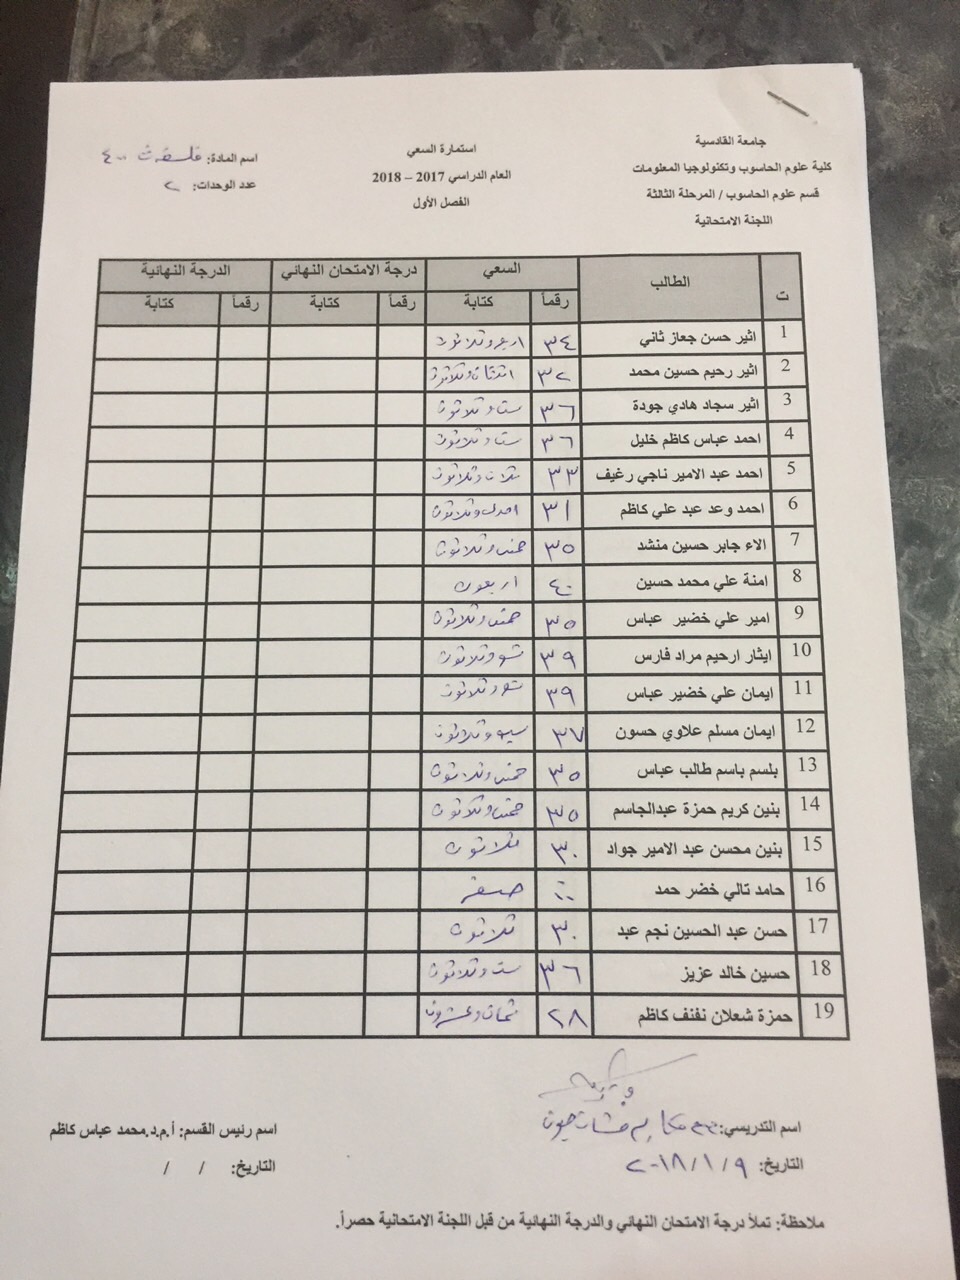 جامعة القادسية
كلية علوم الحاسوب وتكنولوجيا المعلومات
قسم علوم الحاسوب / المرحلة الثالثة
اللجنة الامتحانية
استمارة السعي
العام الدراسي 2017 – 2018
الفصل الأول
اسم المادة:
عدد الوحدات: ٢
ت الطالب السعي درجة الامتحان النهائي الدرجة النهائية
رقماً كتابة رقماً كتابة رقماً كتابة
1 اثير حسن جعاز ثاني ٣٤ اربع وثلاثون
2 اثير رحيم حسين محمد ٣٢ اثنتان وثلاثون
3 اثير سجاد هادي جودة ٣٦ ست وثلاثون
4 احمد عباس كاظم خليل ٣٦ ست وثلاثون
5 احمد عبد الامير ناجي رغيف ٣٣ ثلاث وثلاثون
6 احمد وعد عبد علي كاظم ٣١ احدى وثلاثون
7 الاء جابر حسين منشد ٣٥ خمس وثلاثون
8 امنة علي محمد حسين ٤٠ اربعون
9 امير علي خضير عباس ٣٥ خمس وثلاثون
10 ايثار ارحيم مراد فارس ٣٩ تسع وثلاثون
11 ايمان علي خضير عباس ٣٩ تسع وثلاثون
12 ايمان مسلم علاوي حسون ٣٧ سبع وثلاثون
13 بلسم باسم طالب عباس ٣٥ خمس وثلاثون
14 بنين كريم حمزة عبدالجاسم ٣٥ خمس وثلاثون
15 بنين محسن عبد الامير جواد ٣٠ ثلاثون
16 حامد تالي خضر حمد صفر
17 حسن عبد الحسين نجم عبد ٣٠ ثلاثون
18 حسين خالد عزيز ٣٦ ست وثلاثون
19 حمزة شعلان نفنف كاظم ٢٨ ثمان وعشرون
اسم التدريسي:
التاريخ: ٢٠١٨/١/٩
اسم رئيس القسم: أ.م.د.محمد عباس كاظم
التاريخ: / /
ملاحظة: تملأ درجة الامتحان النهائي والدرجة النهائية من قبل اللجنة الامتحانية حصراً.